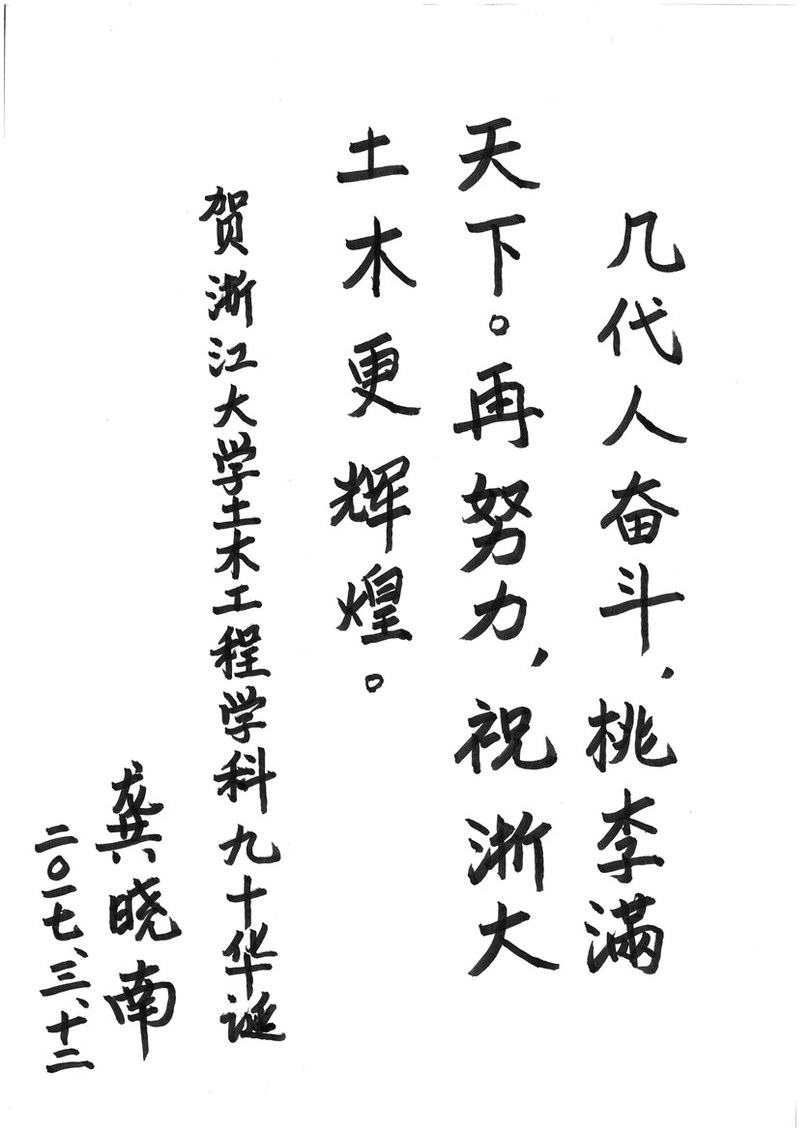 几代人奋斗，桃李满
天下。再努力，祝浙大
土木更辉煌。
贺浙江大学土木工程学科九十华诞
龚晓南
二〇一七、三、十二